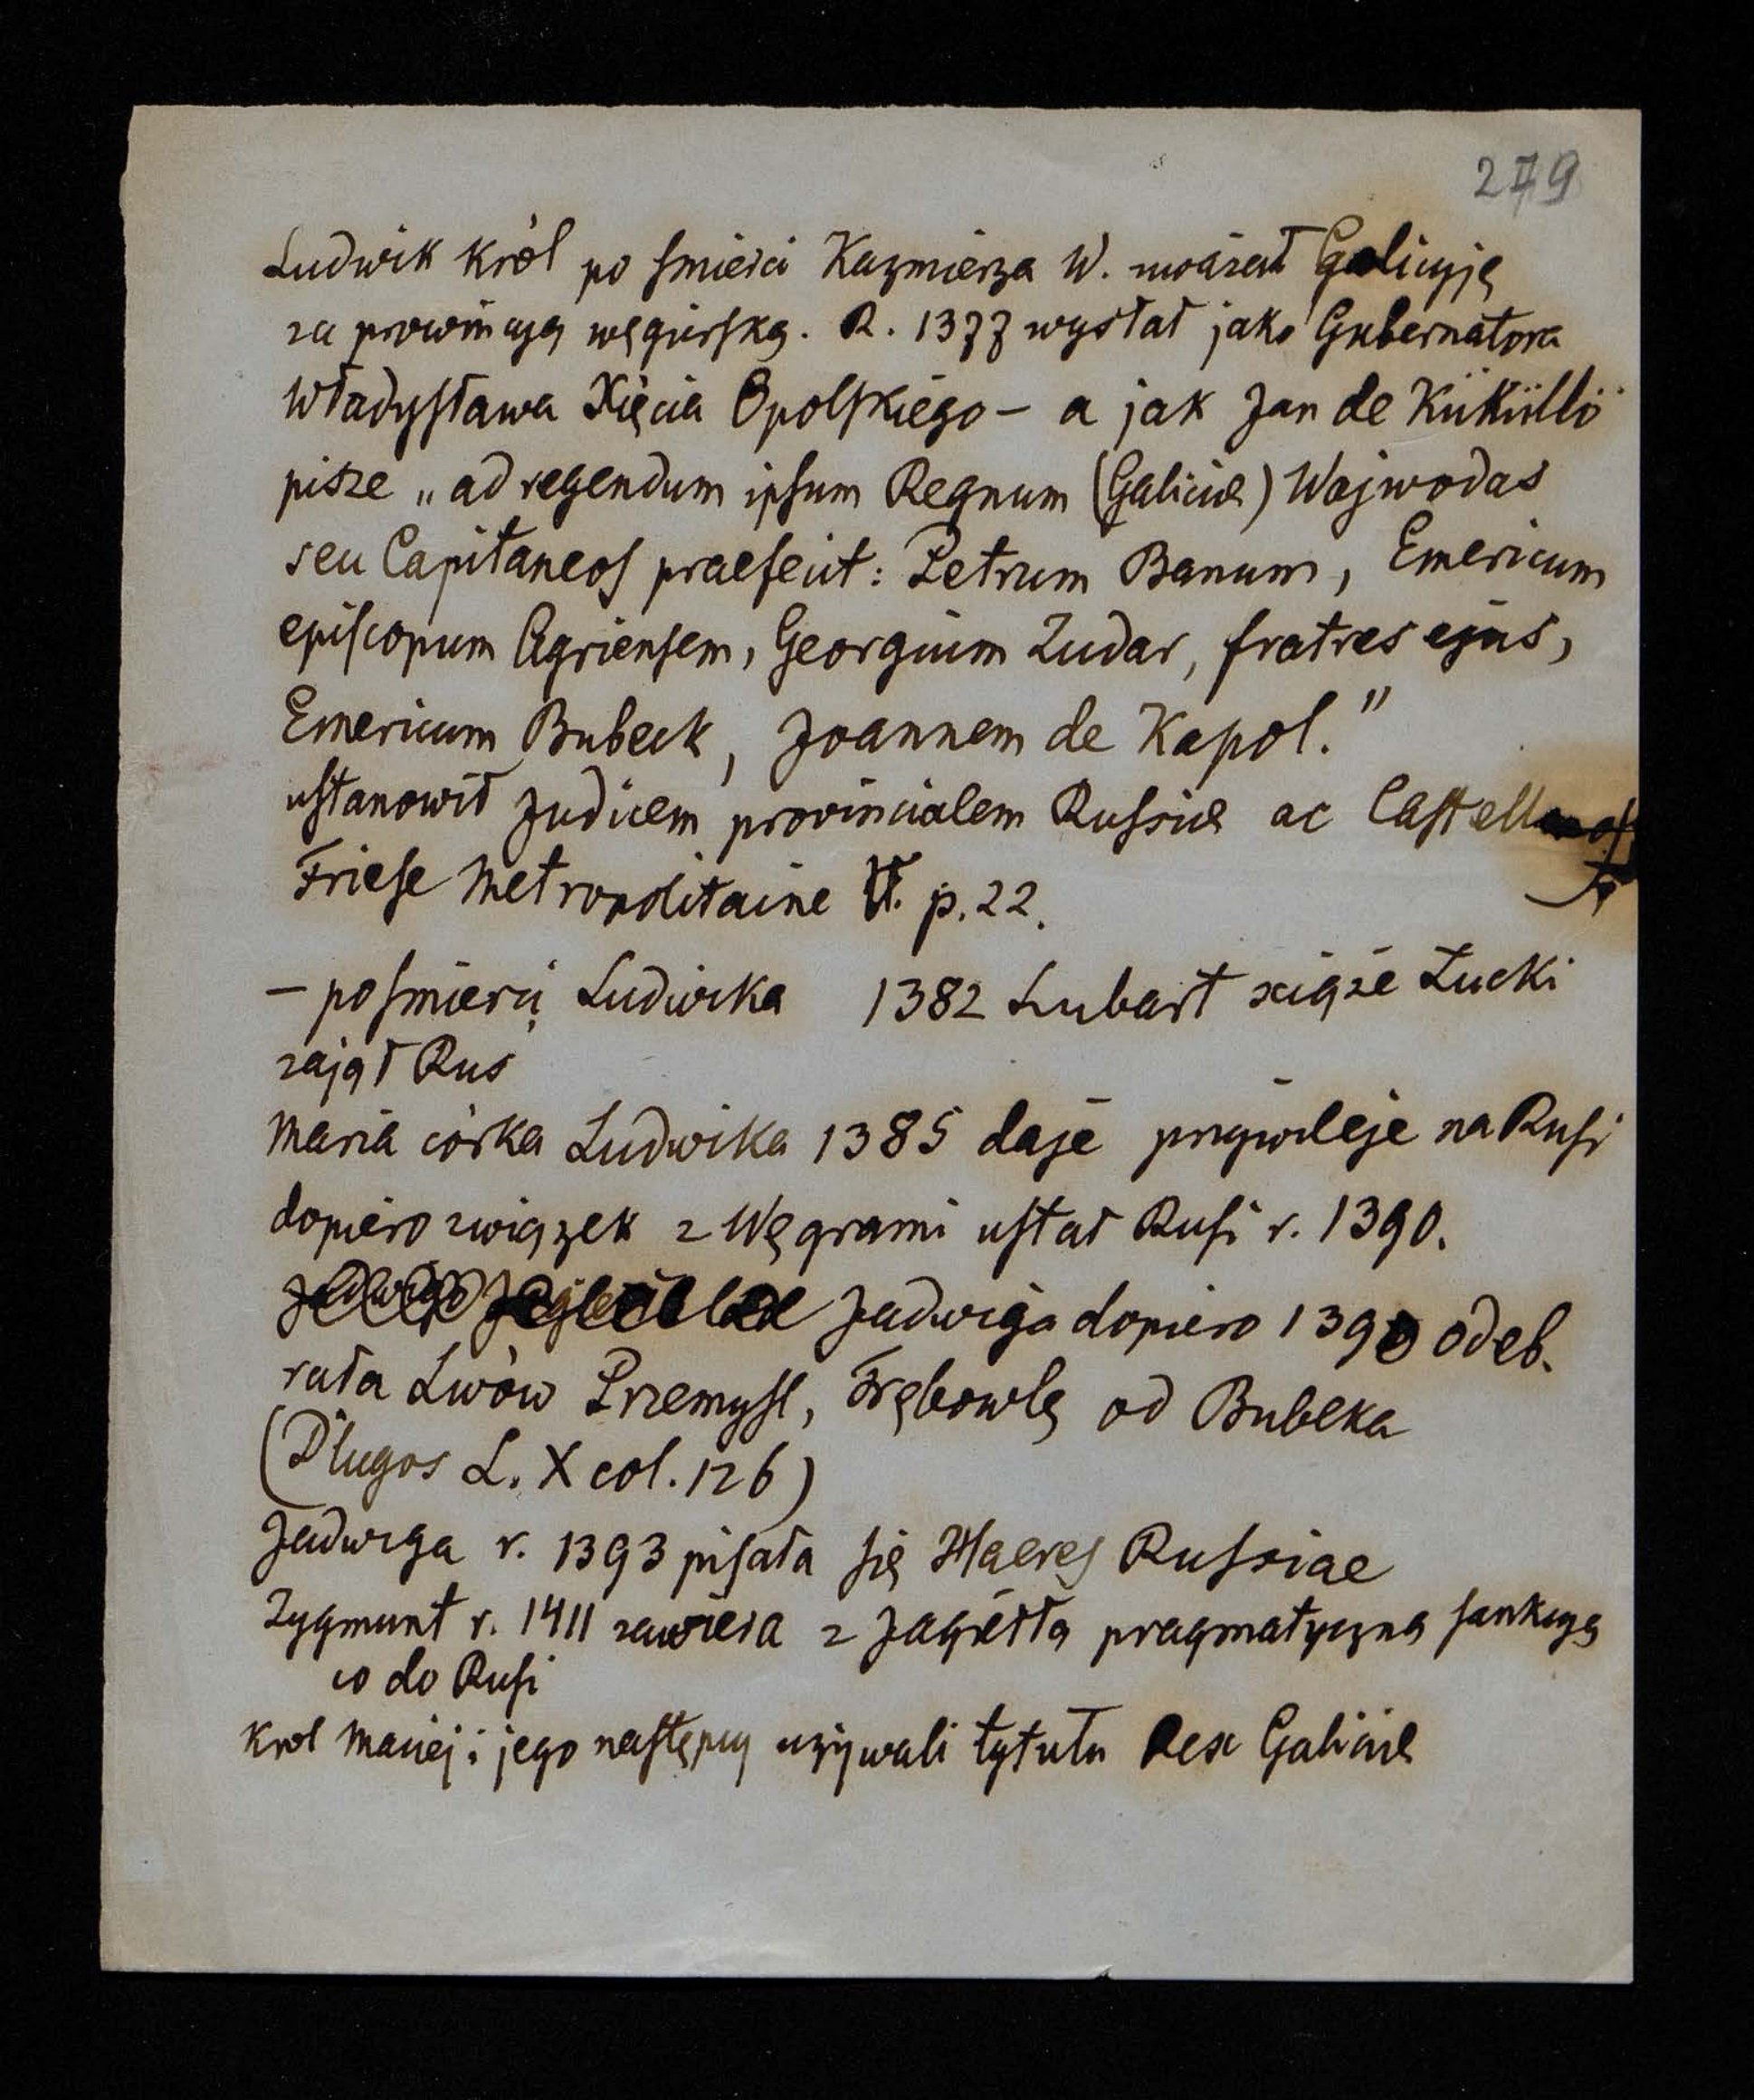 279
Ludwik król po smierci Kazmierza W. uważał Galicyję
za prowincyą węgierską. R. 1377 wysłał jako Gubernatora
Władysława Xięcia Opolskiego – a jak Jan de Küküllö
pisze „ad regendum ipsum Regnum (Galiciæ) Wajwodas
seu Capitaneos praefecit: Petrum Banum, Emericum
episcopum Agriensem, Georgium Zudar, fratres ejus,
Emericum Bubeck, Joannem de Kapol."
ustanowił Judicem provincialem Russiæ ac Castellanos
Friese Metropolitaine p. 22.
– po smierci Ludwika 1382 Lubart xiąże Łucki
zajął Rus
Maria córka Ludwika 1385 daje przywileje na Rusi
dopiero związek z Węgrami ustał Rusi r. 1390.
Jadwiga dopiero 1390 odeb.
rała Lwów Przemysl, Trębowlę od Bubeka
(Długos L. X col. 126)
Jadwiga r. 1393 pisała się Haeres Russiae
Zygmunt r. 1411 zawiera z Jagiełłą pragmatyczną sankcyą
co do Rusi
Krol Maciej i jego następcy używali tytułu Rex Galiciæ